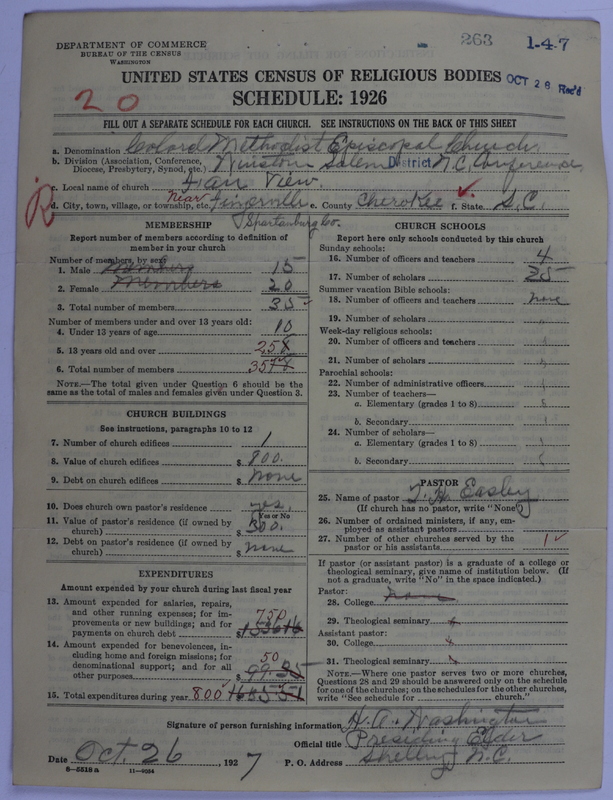 DEPARTMENT OF COMMERCE
BUREAU OF THE CENSUS
WASHINGTON
263
1-4-7
UNITED STATES CENSUS OF RELIGIOUS BODIES
OCT 28 Rec'd
20
SCHEDULE: 1926
FILL OUT A SEPARATE SCHEDULE FOR EACH CHURCH. SEE INSTRUCTIONS ON THE BACK OF THIS SHEET
a. Denomination Colord Methodist Episcopal Church
b. Division (Association, Conference, Diocese, Presbytery, Synod, etc.) Winston Salem District N.C. Conference
c. Local name of church Fair View.
d. City, town, village, or township, etc. near e. County Cherokee f. State S.C.
Spartanburg Co.
MEMBERSHIP
Report number of members according to definition of member in your church
Number of members, by sex:
1. Male Members 15
2. Female Members 20
3. Total number of members 35
Number of members under and over 13 years old:
4. Under 13 years of age 10
5. 13 years old and over 25
6. Total number of members 35
NOTE.—The total given under Question 6 should be the same as the total of males and females given under Question 3.
CHURCH BUILDINGS
See instructions, paragraphs 10 to 12
7. Number of church edifices 1
8. Value of church edifices $ 800.
9. Debt on church edifices $ None
10. Does church own pastor's residence yes.
(Yes or No)
11. Value of pastor's residence (if owned by church) $ 500.
12. Debt on pastor's residence (if owned by church) $ None
EXPENDITURES
Amount expended by your church during last fiscal year
13. Amount expended for salaries, repairs, and other running expenses; for improvements or new buildings; and for payments on church debt $ 750
14. Amount expended for benevolences, including home and foreign missions; for denominational support; and for all other purposes $ 50
99.35
15. Total expenditures during year $ 800
CHURCH SCHOOLS
Report here only schools conducted by this church
Sunday schools:
16. Number of officers and teachers 4
17. Number of scholars 35
Summer vacation Bible schools:
18. Number of officers and teachers none
19. Number of scholars
Week-day religious schools:
20. Number of officers and teachers
21. Number of scholars
Parochial schools:
22. Number of administrative officers
23. Number of teachers—
a. Elementary (grades 1 to 8)
b. Secondary
24. Number of scholars—
a. Elementary (grades 1 to 8)
b. Secondary
PASTOR
25. Name of pastor T. H. Easley
(If church has no pastor, write "None")
26. Number of ordained ministers, if any, employed as assistant pastors
27. Number of other churches served by the pastor or his assistants 1
If pastor (or assistant pastor) is a graduate of a college or theological seminary, give name of institution below. (If not a graduate, write "No" in the space indicated.)
Pastor:
28. College None
29. Theological seminary
Assistant pastor:
30. College
31. Theological seminary
NOTE.—Where one pastor serves two or more churches, Questions 28 and 29 should be answered only on the schedule for one of the churches; on the schedules for the other churches, write "See schedule for church."
Signature of person furnishing information H. A. Washington
Official title Presiding Elder
Date Oct. 26, 1927 P. O. Address N.C.
8-5518a 11-9084